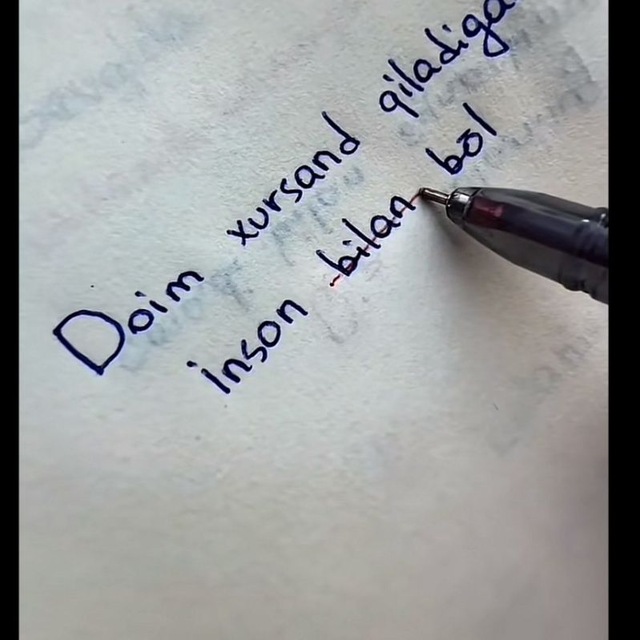 Doim xursand qiladiga
inson bilan bol